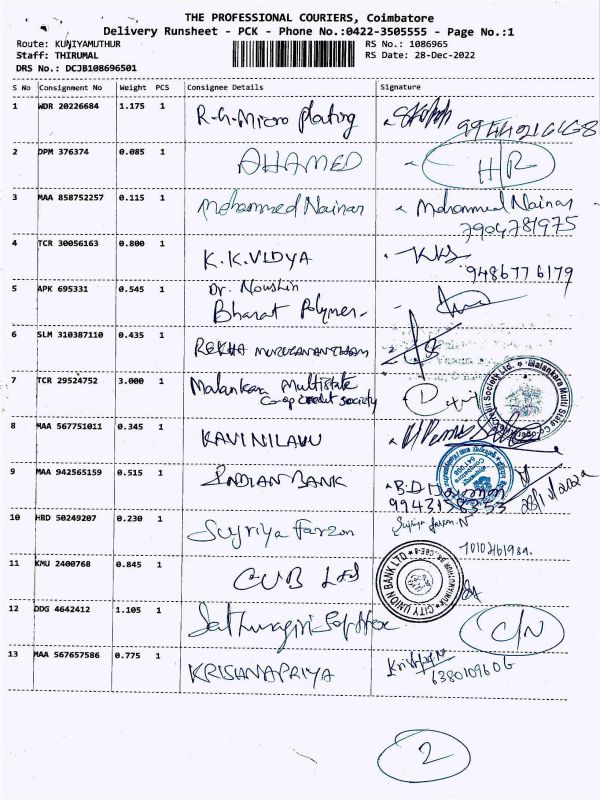 THE PROFESSIONAL COURIERS, Coimbatore
Delivery Runsheet - PCK - Phone No.:0422-3505555 - Page No.:1
Route: KUNIYAMUTHUR RS No.: 1086965
Staff: THIRUMAL RS Date: 28-Dec-2022
DRS No.: DCJB108696501
S No Consignment No Weight PCS Consignee Details Signature
1 WDR 20226684 1.175 1 R-G-Micro plating
2 DPM 376374 0.085 1 AHAMED H/R
3 MAA 858752257 0.115 1 Mohammed Nainar Mohammed Nainar
7904781975
4 TCR 30056163 0.800 1 K.K.VIDYA KKS
9486776179
5 APK 695331 0.545 1 Dr. Noushin
Bharat Polymer-
6 SLM 310387110 0.435 1 REKHA MURUGANANTHAM
7 TCR 29524752 3.000 1 Malankara Multistate
Co-op credit society
8 MAA 567751011 0.345 1 KAVINILAVU
9 MAA 942565159 0.515 1 INDIAN BANK B.D
9943138353 28/12/2022
10 HRD 50249207 0.230 1 Suyriya Farzon
11 KMU 2400768 0.845 1 CUB Ltd CITY UNION BANK LTD
12 DDG 4642412 1.105 1 C/N
13 MAA 567657586 0.775 1 KRISHNAPRIYA
6380109606
2